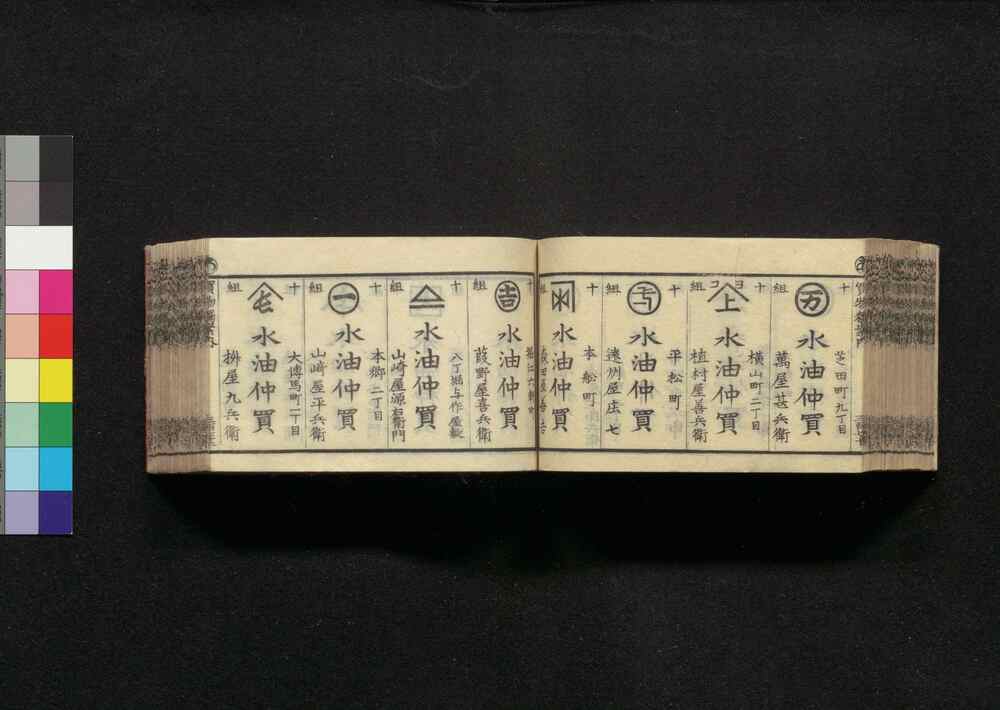 十
万
芝田町九丁目
水油仲買
萬屋甚兵衛
組
十
上
横山町二丁目
水油仲買
植村屋善兵衛
組
十
平松町
水油仲買
遠州屋庄七
組
十
本船町
水油仲買
組
十
吉
水油仲買
葭野屋喜兵衛
組
十
八丁堀与作屋敷
水油仲買
山崎屋源右衛門
組
十
一
本郷二丁目
水油仲買
山崎屋平兵衛
組
十
七
大傳馬町二丁目
水油仲買
桝屋九兵衛
組